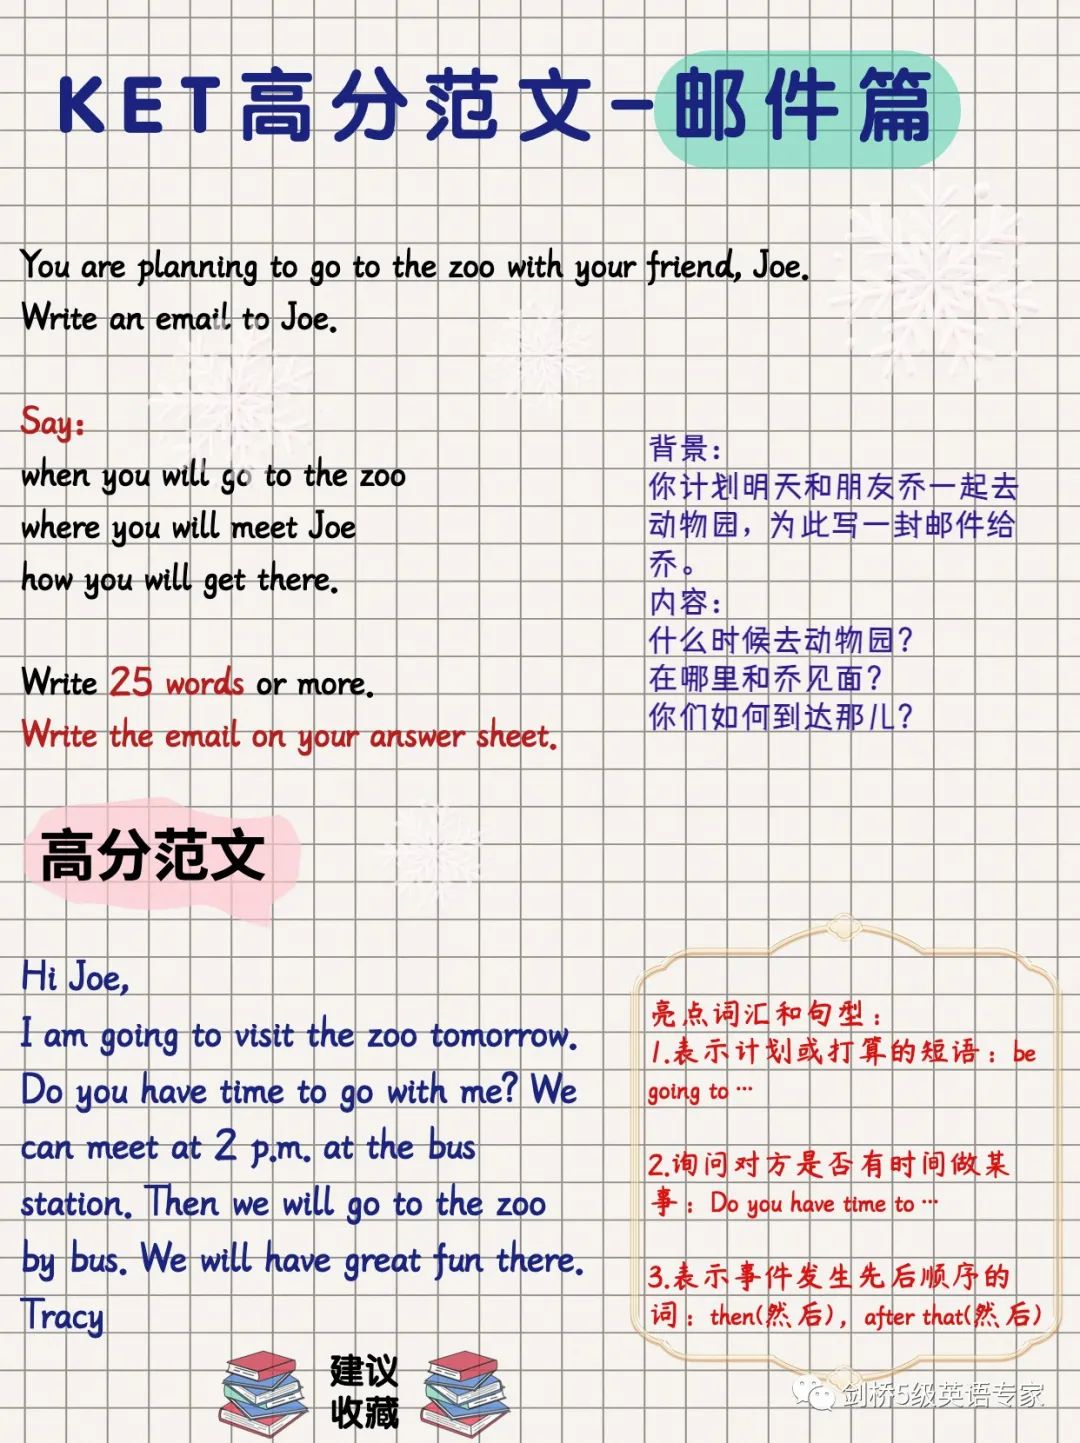 KET高分范文-邮件篇
You are planning to go to the zoo with your friend, Joe.
Write an email to Joe.
Say:
when you will go to the zoo
where you will meet Joe
how you will get there.
Write 25 words or more.
Write the email on your answer sheet.
背景：
你计划明天和朋友乔一起去
动物园，为此写一封邮件给
乔。
内容：
什么时候去动物园？
在哪里和乔见面？
你们如何到达那儿？
高分范文
Hi Joe,
I am going to visit the zoo tomorrow.
Do you have time to go with me? We
can meet at 2 p.m. at the bus
station. Then we will go to the zoo
by bus. We will have great fun there.
Tracy
亮点词汇和句型：
1.表示计划或打算的短语：be
going to …
2.询问对方是否有时间做某
事：Do you have time to …
3.表示事件发生先后顺序的
词：then(然后)，after that(然后)
建议
收藏
剑桥5级英语专家